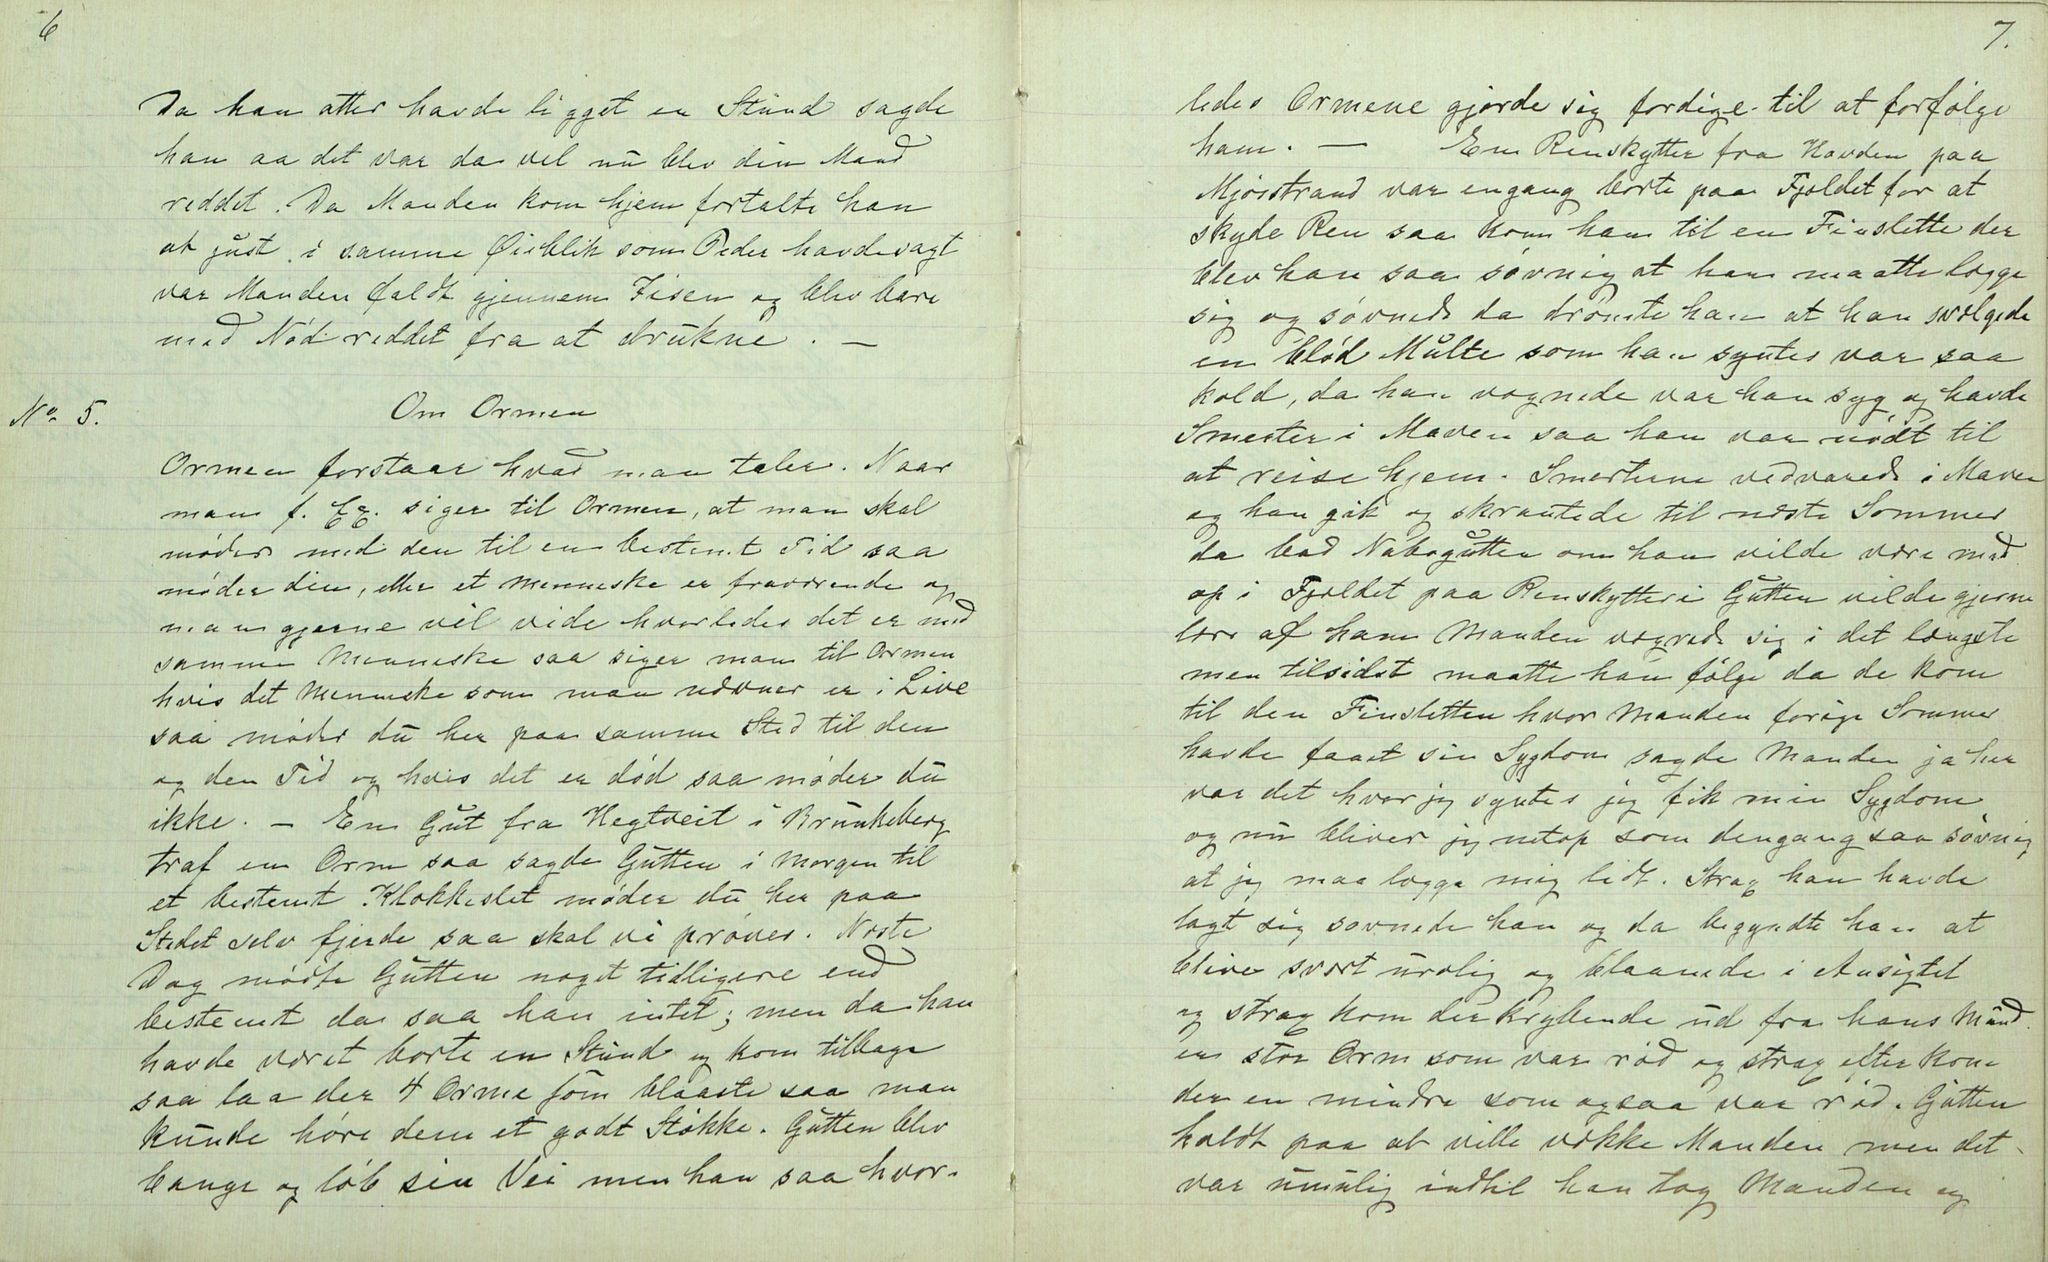 6
Da han atter havde ligget en Stund sagde
han aa det var da vel nu blev din Mand
reddet. Da Manden kom hjem fortalte han
at just i samme Øieblik som Peder havde sagt
var Manden faldt gjennem Iisen og blev bare
med Nød reddet fra at drukne. —
No 5. Om Ormen
Ormen forstaar hvad man taler. Naar
man f. Ex. siger til Ormen, at man skal
møder med den til en bestemt Tid saa
møder den, eller et Menneske er fraværende og
man gjerne vil vide hvorledes det er med
samme Menneske saa siger man til Ormen
hvis det Menneske som man nævner er i Live
saa møder du her paa samme Sted til den
og den Tid og hvis det er død saa møder du
ikke. — En Gut fra Hegtveit i Brunkeberg
traf en Orm saa sagde Gutten i Morgen til
et bestemt Klokkeslet møder du her paa
Stedet selv fjerde saa skal vi prøves. Næste
Dag mødte Gutten noget tidligere end
bestemt da saa han intet; men da han
havde været borte en Stund og kom tilbage
saa laa der 4 Orme som blaaste saa man
kunde høre dem et godt Støkke. Gutten blev
bange og løb sin Vei men han saa hvor-
7.
ledes Ormene gjorde sig færdige til at forfølge
ham. — En Renskytter fra Hovden paa
Mjøsstrand var engang borte paa Fjeldet for at
skyde Ren saa kom han til en Finslette der
blev han saa søvnig at han maatte lægge
sig og søvnede da drømte han at han svælgede
en blød Multe som han syntes var saa
kold, da han vognede var han syg og havde
Smerter i Maven saa han var nødt til
at reise hjem. Smerterne vedvarede i Maven
og han gik og skrantede til næste Sommer
da bad Nabogutten om han vilde være med
op i Fjeldet paa Renskytteri Gutten vilde gjerne
lære af ham Manden vægrede sig i det længste
men tilsidst maatte han følge da de kom
til den Finsletten hvor Manden forige Sommer
havde faaet sin Sygdom sagde Manden ja her
var det hvor jeg syntes jeg fik min Sygdom
og nu bliver jeg netop som dengang saa søvnig
at jeg maa lægge mig lidt. Strax han havde
lagt sig sovnede han og da begyndte han at
blive svært urolig og blaanede i Ansigtet
og strax kom der krybende ud fra hans Mund
en stor Orm som var rød og strax efter kom
der en mindre som ogsaa var rød. Gutten
holdt paa at ville vække Manden men det
var umulig indtil han tog Manden og